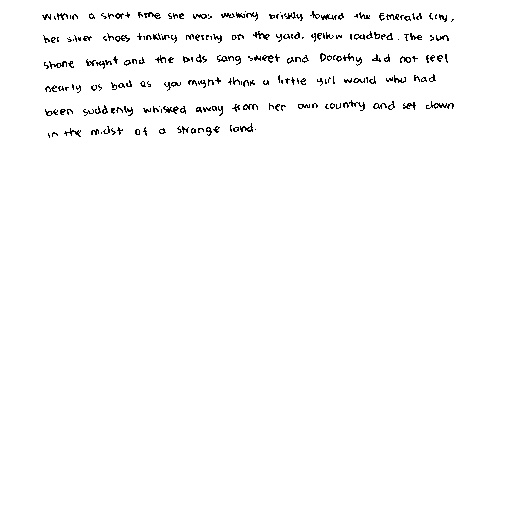 Within a short time she was walking briskly toward the Emerald City,
her silver shoes tinkling merrily on the yard, yellow roadbed. The sun
shone bright and the birds sang sweet and Dorothy did not feel
nearly as bad as you might think a little girl would who had
been suddenly whisked away from her own country and set down
in the midst of a strange land.